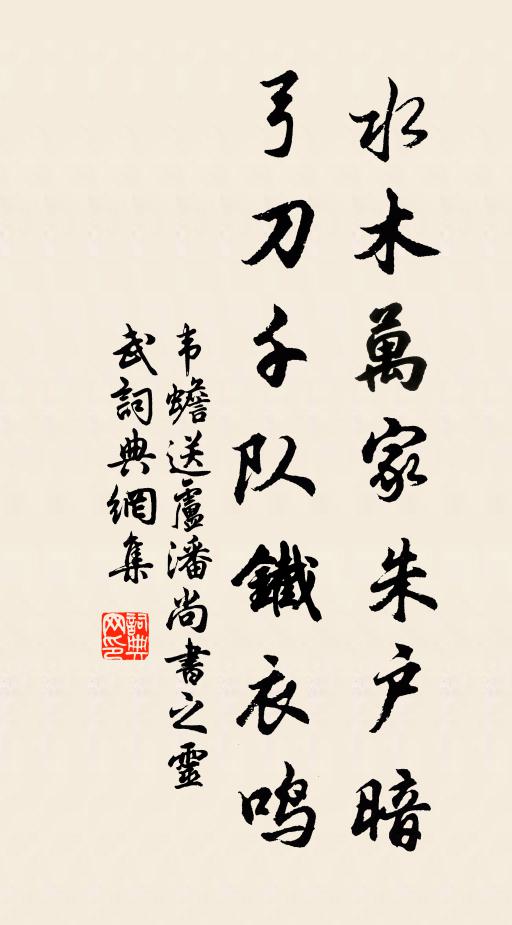 水木萬家朱户暗
弓刀千队鐵衣鸣
韦蟾送盧潘尚書之靈
武詞典網集
詞典
网印